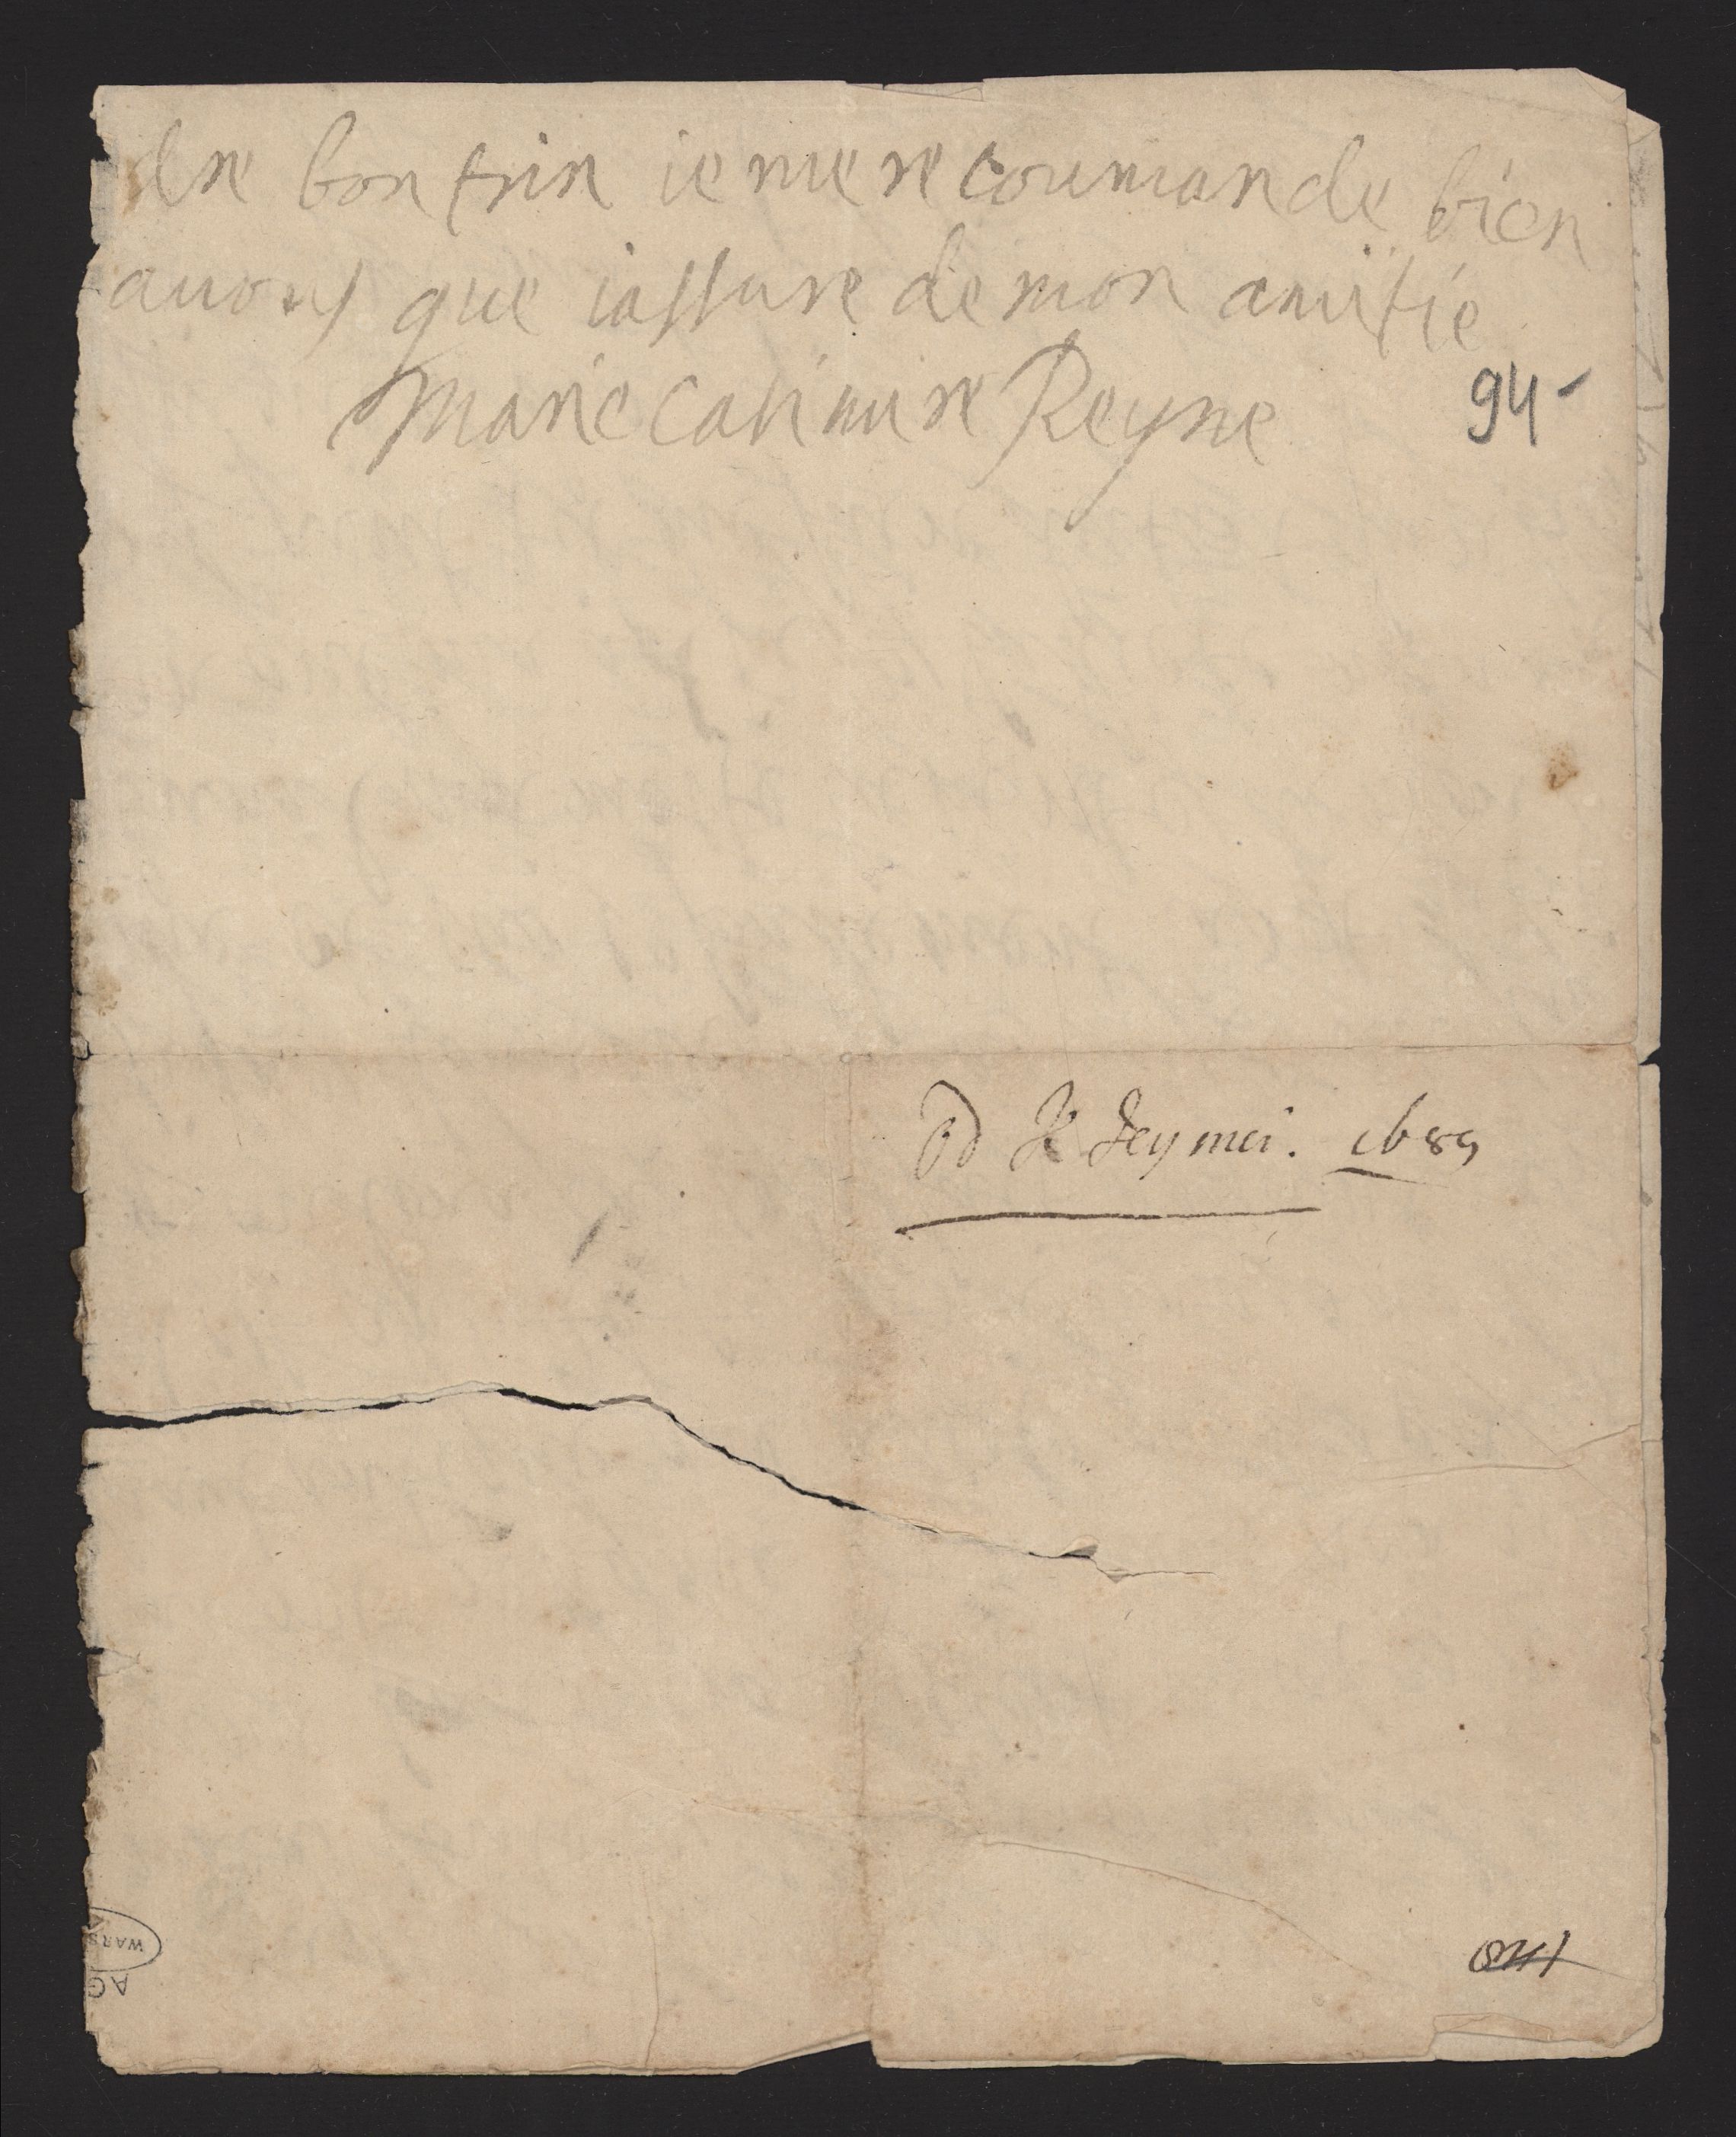 dre bon trin ie me recoumande bien
auous que iassure de mon amitié
Marie Casimire Reyne
94-
Od K Jey mci. 1689
WARS
AG